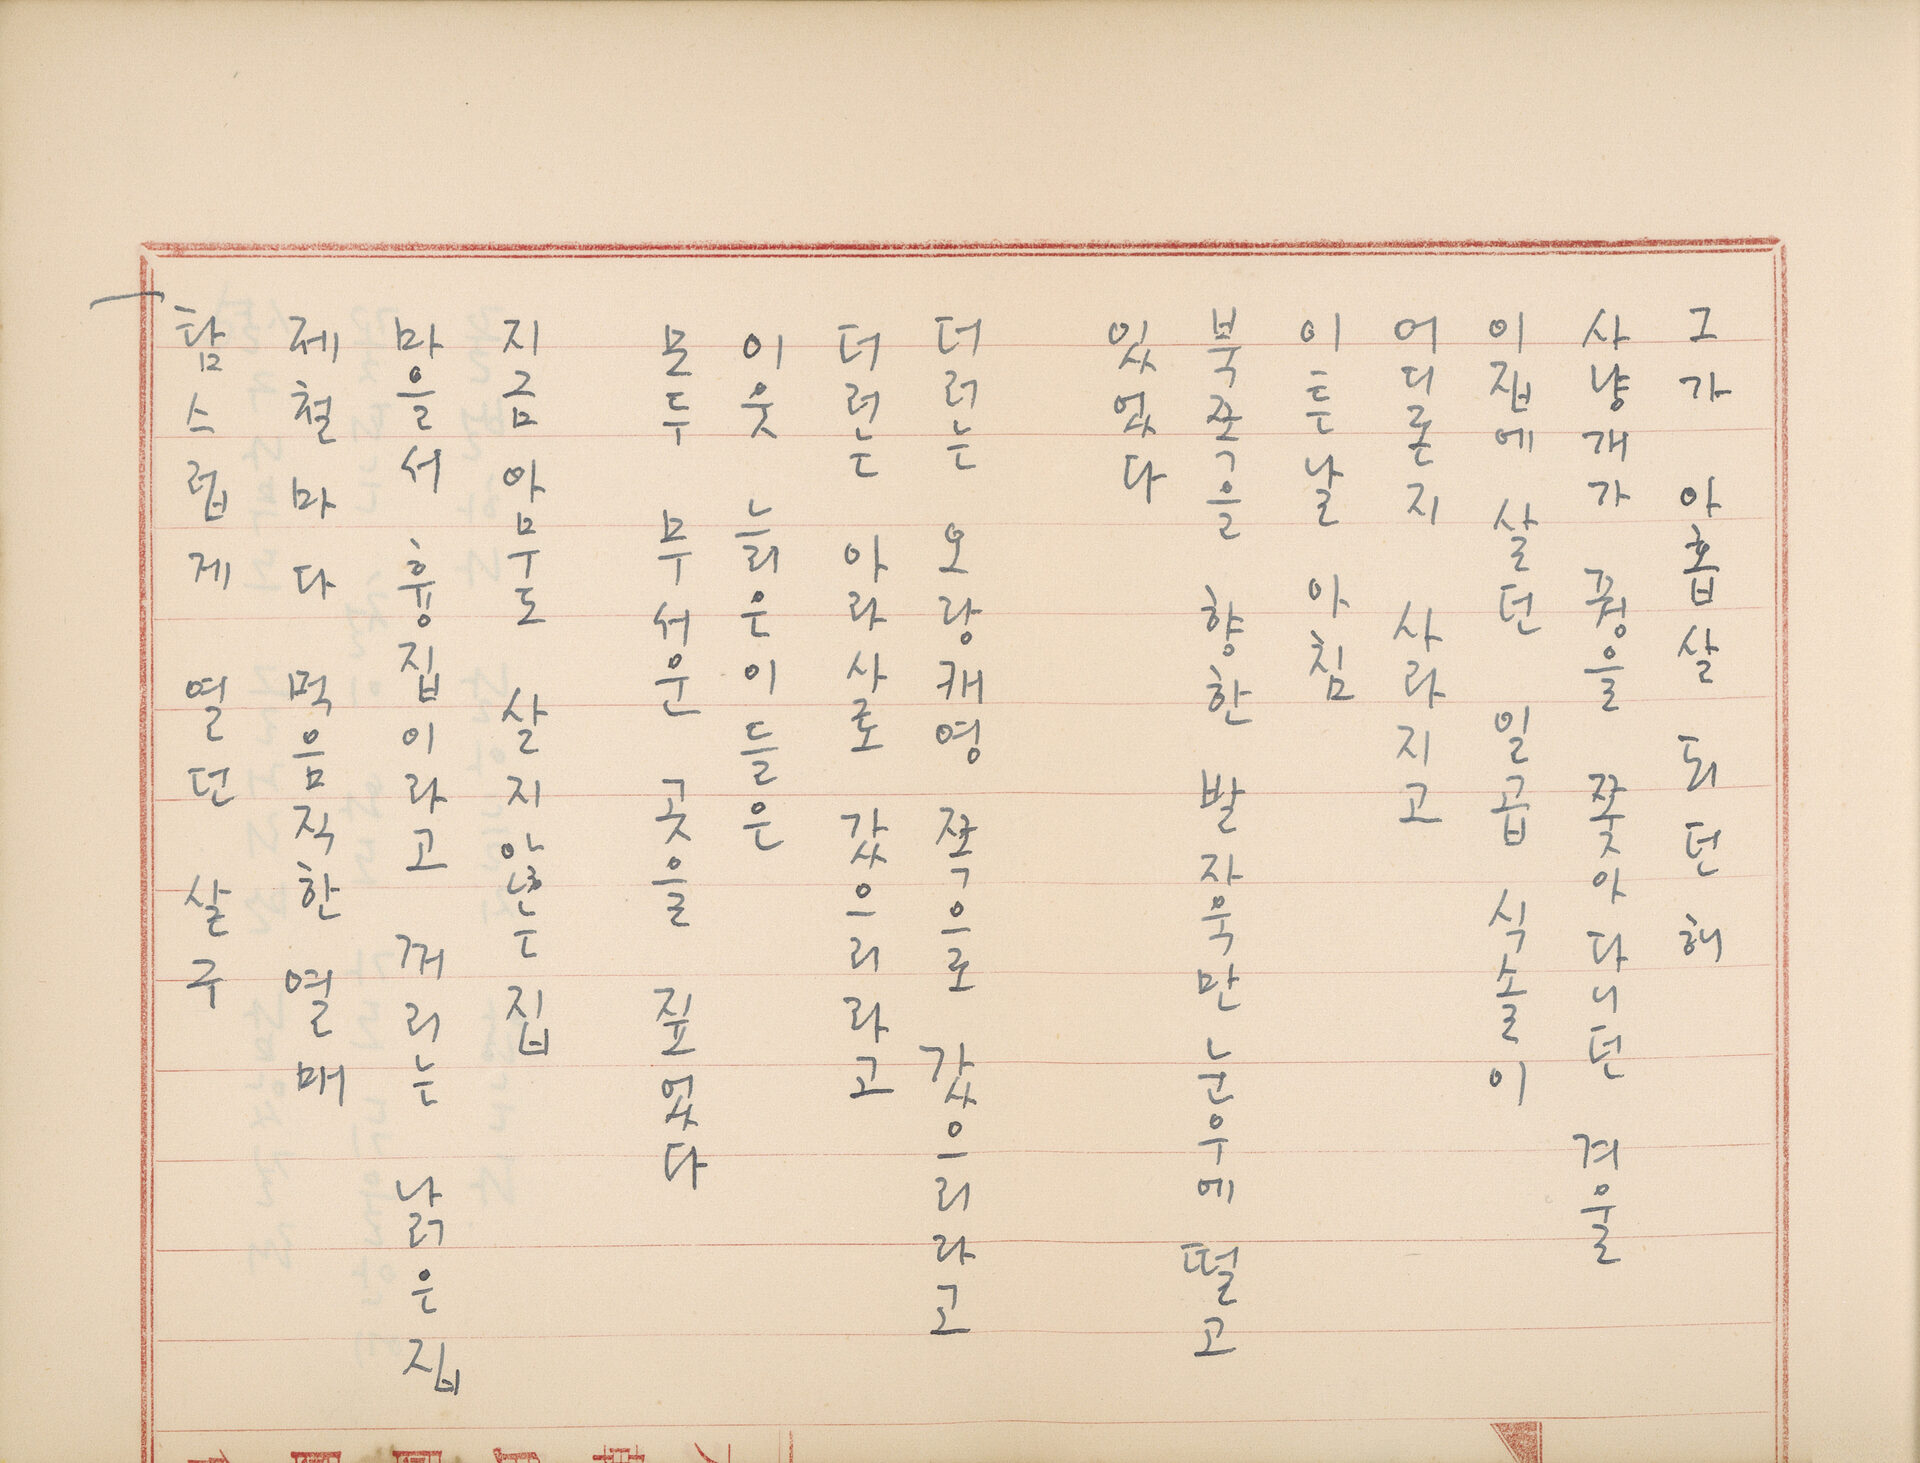 그가 아홉살 되던 해
사냥개가 꿩을 쫓아다니던 겨울
이집에 살던 일곱 식솔이
어디론지 사라지고
이튿날 아침
북쪽을 향한 발자욱만 눈우에 떨고
있었다
더러는 오랑캐영 쪽으로 갔으리라고
더러는 아라사로 갔으리라고
이웃 늙은이들은
모두 무서운 곳을 짚었다
지금 아무도 살지않는 집
마을서 흉집이라고 꺼리는 낡은 집
제철마다 먹음직한 열매
탐스럽게 열던 살구